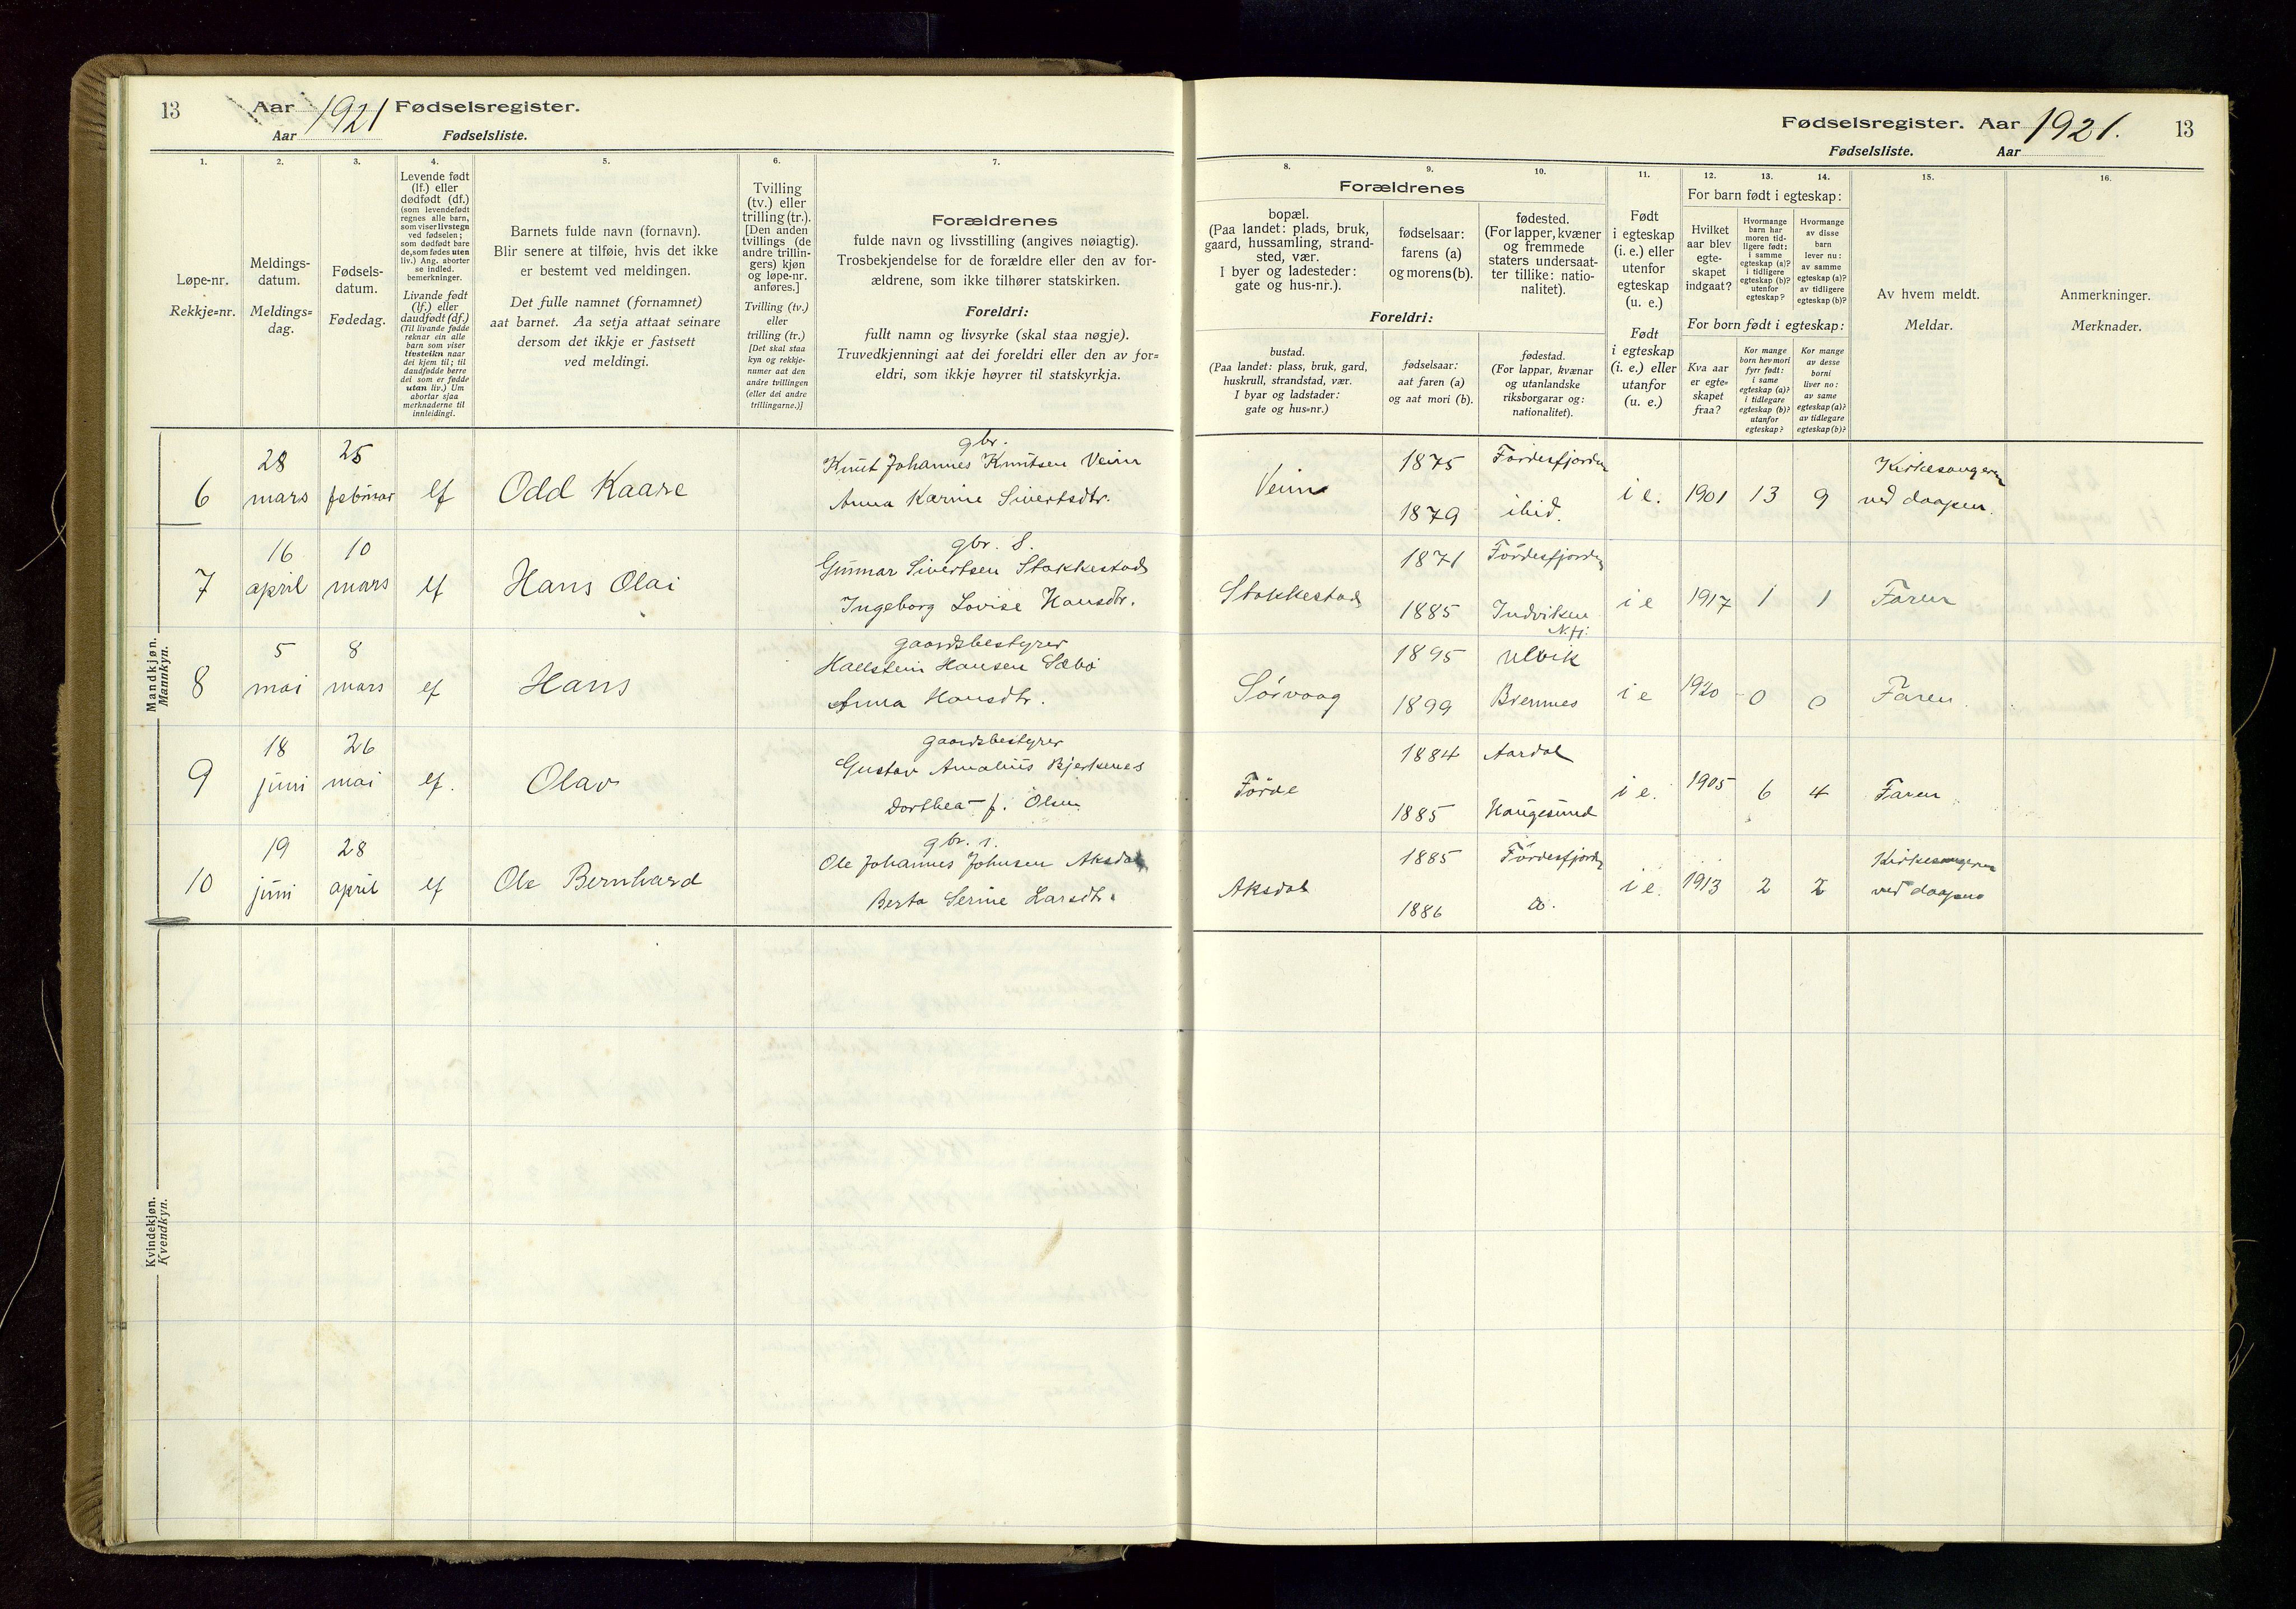 13
Aar 1921 Fødselsregister.
Aar Fødselsliste.
1.
Løpe-nr.
Rekkje=nr.
2.
Meldings-
datum.
Meldings=
dag.
3.
Fødsels-
datum.
Fødedag.
4.
Levende født
(lf.) eller
dødfødt (df.)
(som levendefødt
regnes alle barn,
som viser livstegn
ved fødselen;
som dødfødt bare
de, som fødes uten
liv.) Ang. aborter
se indled.
bemerkninger.
Livande født
(lf.) eller
daudfødt (df.)
(Til livande fødde
reknar ein alle
barn som viser
livsteikn naar
dei kjem til; til
daudfødde berre
dei som er fødde
utan liv.) Um
abortar sjaa
merknaderne til
innleidingi.
5.
Barnets fulde navn (fornavn).
Blir senere at tilføie, hvis det ikke
er bestemt ved meldingen.
Det fulle namnet (fornamnet)
aat barnet. Aa setja attaat seinare
dersom det ikkje er fastsett
ved meldingi.
6.
Tvilling
(tv.) eller
trilling (tr.).
[Den anden
tvillings (de
andre trillin-
gers) kjøn
og løpe-nr.
anføres.]
Tvilling (tv.)
eller
trilling (tr.)
[Det skal staa
kyn og rekkje-
numer aat den
andre tvillingen
(eller dei andre
trillingarne.)]
7.
Forældrenes
fulde navn og livsstilling (angives nøiagtig).
Trosbekjendelse for de forældre eller den av for-
ældrene, som ikke tilhører statskirken.
Foreldri:
fullt namn og livsyrke (skal staa nøgje).
Truvedkjenningi aat dei foreldri eller den av for=
eldri, som ikkje høyrer til statskyrkja.
Mandkjøn.
Mannkyn.
6 28 mars 25 februar lf Odd Kaare
gbr.
Knut Johannes Knutsen Veim
Anna Karine Sivertsdtr.
7 16 april 10 mars lf Hans Olai
gbr. S.
Gunnar Sivertsen Stakkestad
Ingeborg Lovise Hansdtr.
8 5 mai 8 mars lf Hans
gaardsbestyrer
Hallstein Hansen Sæbö
Anna Hansdtr.
9 18 juni 26 mai lf. Olav
gaardsbestyrer
Gustav Amalius Bjerkenes
Dorthea f. Olsen
10 19 juni 28 april lf Ole Bernhard
gbr. s.
Ole Johannes Johnsen Aksdal
Berta Serine Larsdtr.
Kvindekjøn.
Kvendkyn.
Fødselsregister. Aar 1921. 13
Fødselsliste. Aar
8.
Forældrenes
bopæl.
(Paa landet: plads, bruk,
gaard, hussamling, strand-
sted, vær.
I byer og ladesteder:
gate og hus-nr.).
Foreldri:
bustad.
(Paa landet: plass, bruk, gard,
huskrull, strandstad, vær.
I byar og ladstader:
gate og hus=nr.)
9.
fødselsaar:
farens (a)
og morens (b).
fødselsaar:
aat faren (a)
og aat mori (b).
10.
fødested.
(For lapper, kvæner
og fremmede
staters undersaat-
ter tillike: natio-
nalitet).
fødestad.
(For lappar, kvænar
og utanlandske
riksborgarar og:
nationalitet).
11.
Født
i egteskap
(i. e.) eller
utenfor
egteskap
(u. e.)
Født
i egteskap
(i. e.) eller
utanfor
(u. e.)
For barn født i egteskap:
12.
Hvilket
aar blev
egte-
skapet
indgaat?
13.
Hvormange
barn har
moren tid-
ligere født:
i samme
egteskap (a)?
i tidligere
egteskap (b)?
utenfor
egteskap?
14.
Hvormange
av disse
barn
lever nu:
av samme
egteskap (a)?
av tidligere
egteskap (b)?
For born født i egteskap:
Kva aar
er egte=
skapet
fraa?
Kor mange
born hev mori
fyrr født:
i same
egteskap (a)?
i tidlegare
egteskap (b)?
utanfor
egteskap?
Kor mange
av desse
borni
liver no:
av same
egteskap (a)?
av tidlegare
egteskap (b)?
15.
Av hvem meldt.
Meldar.
16.
Anmerkninger.
Merknader.
Veim 1875 Førdesfjorden
1879 ibid.
i e. 1901 13 9 Kirkesangeren
ved daapen.
Stakkestad 1871 Førdesfjorden
1885 Indviken
N.fj.
i e 1917 1 1 Faren
Sörvaag 1895 Ulvik
1899 Bremnes
i e 1920 0 0 Faren.
Förde 1884 Aardal
1885 Haugesund
i e. 1905 6 4 Faren
Aksdal 1885 Førdesfjorden
1886 do.
i e. 1913 2 2 Kirkesangeren
ved daapen